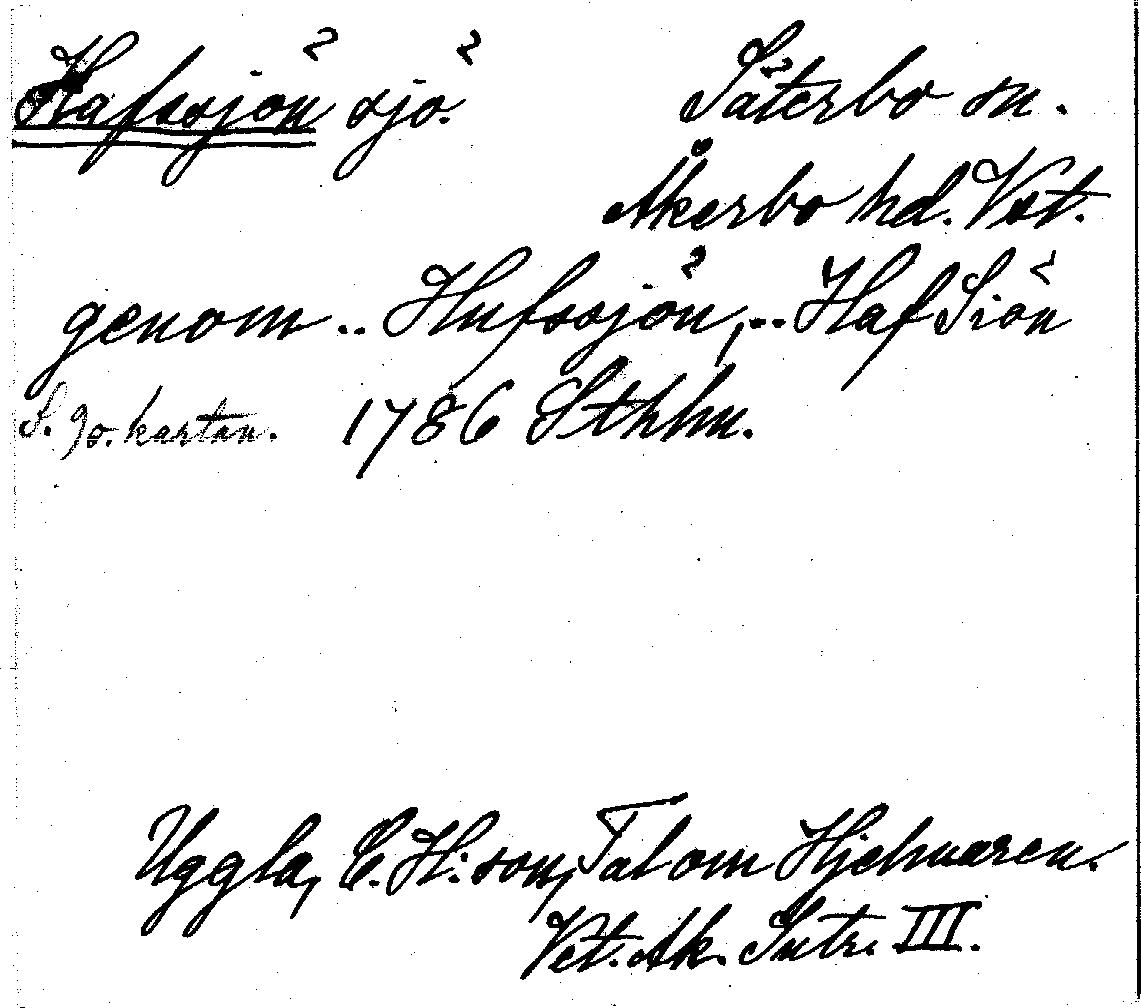 Hafssjön sjö.
Säterbo sn.
Åkerbo hd. Vst.
genom .. Hufssjön, .. Haf Siön
S. Jo. kartan. 1786 Sthlm.
Uggla, C. H:son, Tal om Hjelmaren.
Vet. Ak. Intr. III.